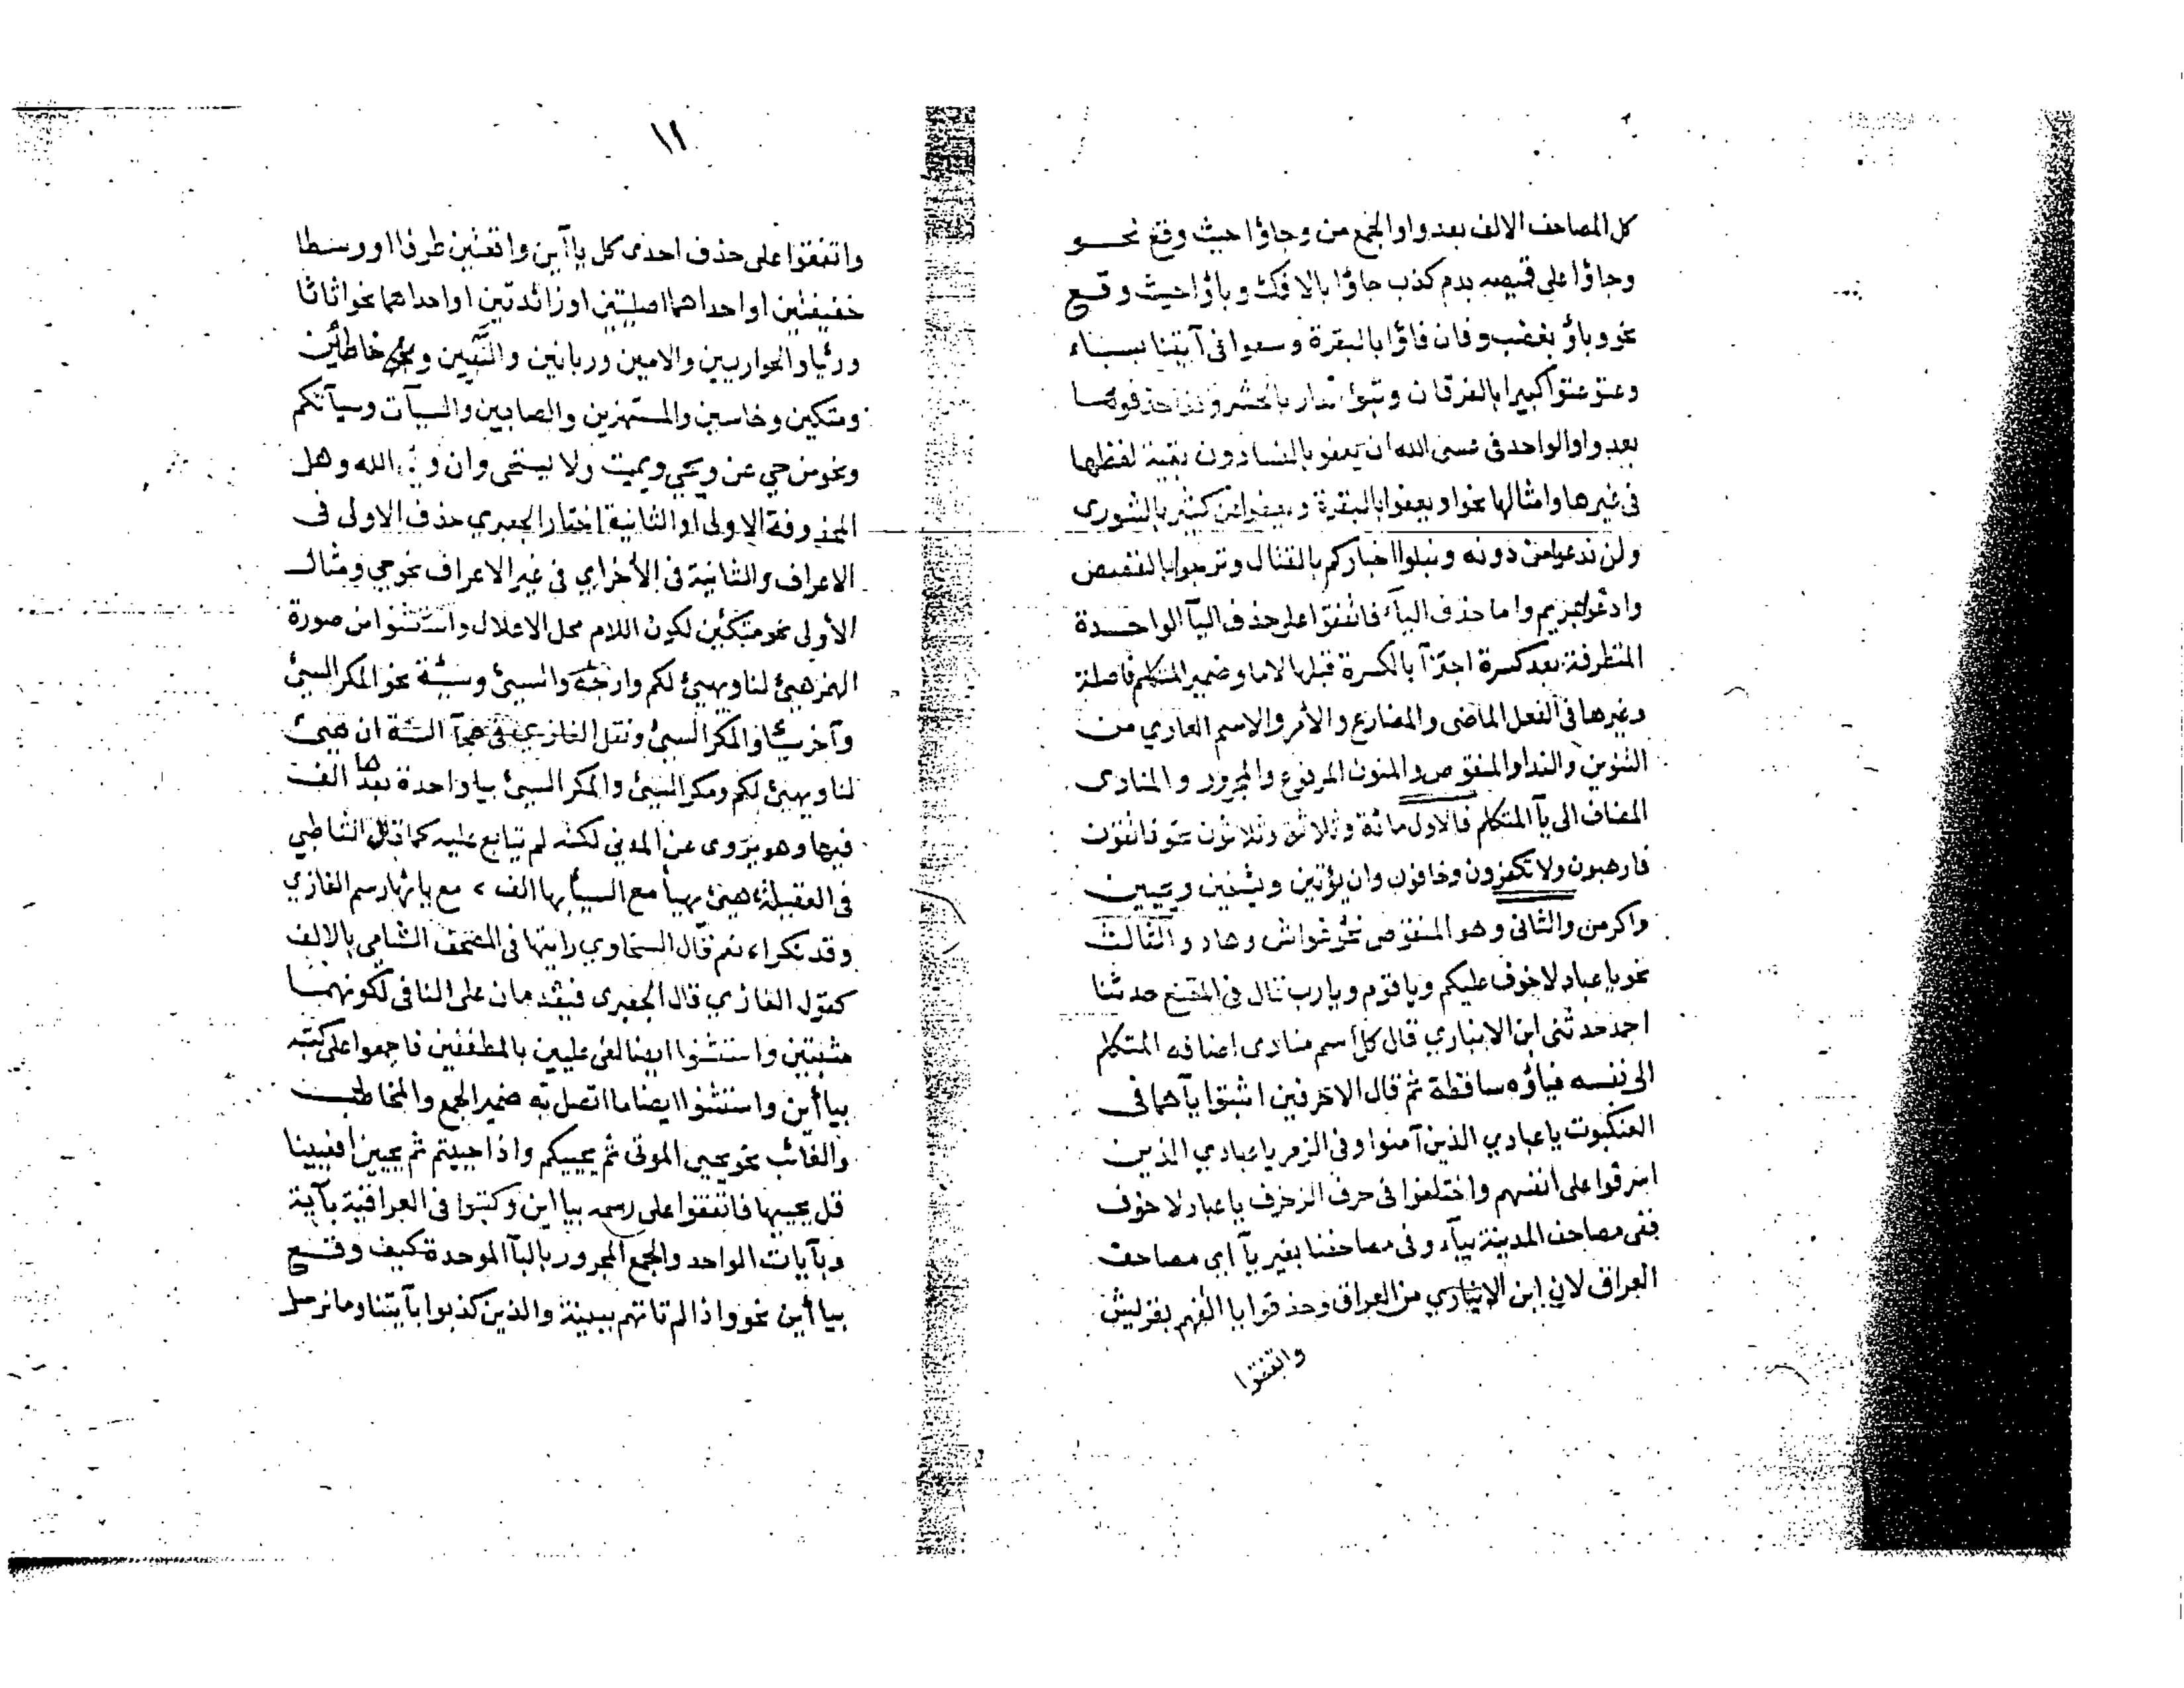 كل المصاحف الالف بعد واو الجمع من وجاؤا حيث وقع نحو
وجاؤا على قميصه بدم كذب جاؤا بالافك وباؤا حيث وقع
نحو وباؤ بغضب وفان فاؤا بالبقرة وسعوا فى آيتنا بسباء
وعتو عتوا كبيرا بالفرقان وتبوؤ الدار بالحشر وكذا حذفوها
بعد واو الواحد فى عسى الله ان يعفو بالنسا دون بقية لفظها
فى غيرها وامثالها نحو او يعفوا بالبقرة ويعفوا عن كثير بالشورى
ولن ندعوا من دونه ونبلوا اخباركم بالقتال وترجوا بالقصص
وادعوا بمريم واما حذف اليآء فاتفقوا على حذف اليآ الواحدة
المتطرفة بعد كسرة اجتزآ بالكسرة قبلها لاما وضمير المتكلم فاصلة
وغيرها فى الفعل الماضى والمضارع والأمر والاسم العاري من
التنوين والندا والمنقوص والمنون المرفوع والمجرور والمنادى
المضاف الى يآ المتكلم فالاول مائة وثلاثة وثلاثون نحو فاتقون
فارهبون ولا تكفرون وخافون وان يؤتين ويشفين ويحيين
واكرمن والثانى وهو المنقوص نحو غواش وهاد والثالث
نحو يا عباد لا خوف عليكم ويا قوم ويارب قال فى المقنع حدثنا
احمد حدثنى ابن الانباري قال كل اسم منادى اضافه المتكلم
الى نفسه فياؤه ساقطة ثم قال الا حرفين اثبتوا يآهما فى
العنكبوت يا عبادي الذين آمنوا وفى الزمر يا عبادي الذين
اسرفوا على انفسهم واختلفوا فى حرف الزخرف يا عباد لا خوف
ففى مصاحف المدينة بيآء وفى مصاحفنا بغير يآ اي مصاحف
العراق لان ابن الانباري من العراق وحذفوا يا الفهم بقريش
واتفقوا
١١
واتفقوا على حذف احدى كل ياآين واقعتين طرفا او وسطا
خفيفتين او احداهما اصليتين او زائدتين او احداهما نحو اثاثا
ورئيا والحواريين والامين وربانين والنبيين ونحو خاطئين
ومتكين وخاسين والمستهزين والصابين والسيآت وسيآتكم
ونحو من حي عن ويحي ويميت ولا يستحى وان و الله وهل
المحذوفة الاولى او الثانية اختار الجعبري حذف الاولى فى
الاعراف والثانية فى الأخراي فى غير الاعراف نحو حي ومثال
الأولى نحو متكئين لكون اللام محل الاعلال واستثنوا من صورة
الهمز هيئ لنا ويهيئ لكم وارجئه والسيئ وسيئة نحو المكر السيئ
وآخر سيئا والمكر السيئ ونقل الغازي فى هجآ السنة ان هيئ
لنا ويهيئ لكم ومكر السيئ والمكر السيئ بيا واحدة بعدها الف
فيها وهو يروى عن المدنى لكنه لم يتابع عليه كما قال الشاطبي
فى العقيلة، هيئ يهيأ مع السيأ بها الف ، مع يائها رسم الغازي
وقد نكرا، نعم قال السخاوي رايتها فى المصحف الشامى بالالف
كقول الغازي قال الجعبرى فيقدمان على النافى لكونهما
مثبتين واستثنوا ايضا لفى عليين بالمطففين فاجمعوا على كتبه
بيا أين واستثنوا ايضا ما اتصل به ضمير الجمع والمخاطب
والغائب نحو يحيى الموتى ثم يحييكم واذا حييتم ثم يحيين افعيينا
قل يحييها فاتفقوا على رسمه بيا اين وكتبوا فى العراقية بآية
وبآيات الواحد والجمع المجرور بالبآ الموحدة كيف وقع
بيا أين نحو واذا لم تاتهم ببينة والذين كذبوا بآيتنا وما نرسل